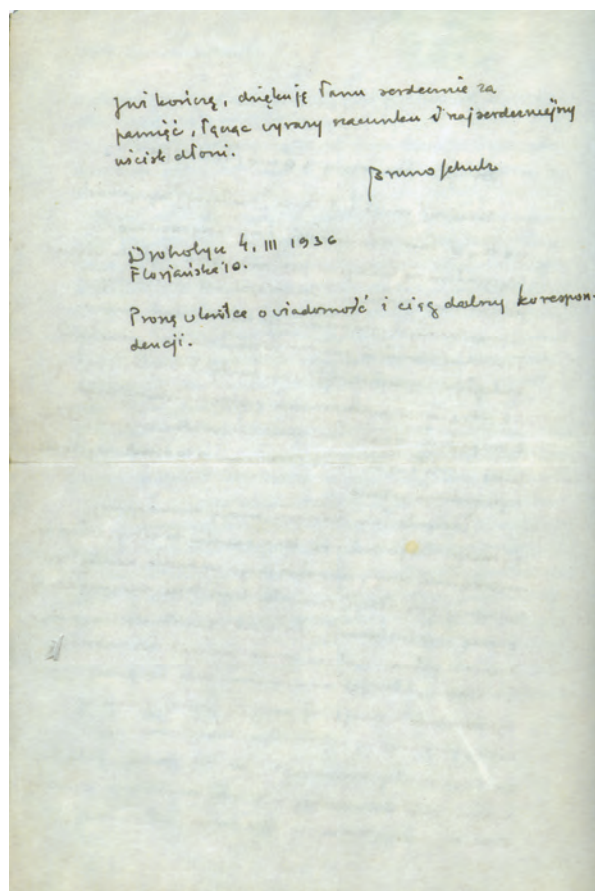 Już kończę, dziękuję Panu serdecznie za
pamięć, łącząc wyrazy szacunku i najserdeczniejszy
uścisk dłoni.
Bruno Schulz
Drohobycz 4. III 1936
Florjańska 10.
Proszę wkrótce o wiadomość i ciąg dalszy korespon-
dencji.